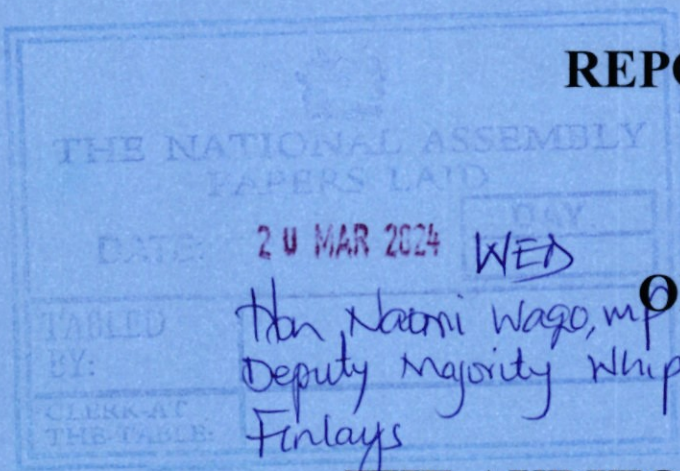 REPO
THE NATIONAL ASSEMBLY
PAPERS LAID
DATE: 20 MAR 2024 DAY
WED
O
TABLED BY: Hon Naomi Wago, MP
Deputy Majority Whip
CLERK-AT THE-TABLE: Finlays